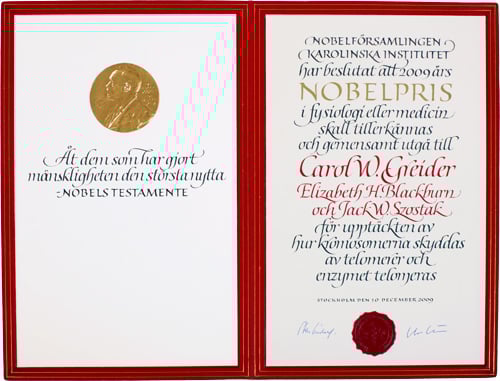 Åt dem som har gjort
mänskligheten den största nytta
NOBELS TESTAMENTE
NOBELFÖRSAMLINGEN
KAROLINSKA INSTITUTET
har beslutat att 2009 års
NOBELPRIS
i fysiologi eller medicin
skall tillerkännas
och gemensamt utgå till
Carol W. Greider
Elizabeth H. Blackburn
och Jack W. Szostak
för upptäckten av
hur kromosomerna skyddas
av telomerer och
enzymet telomeras
STOCKHOLM DEN 10 DECEMBER 2009